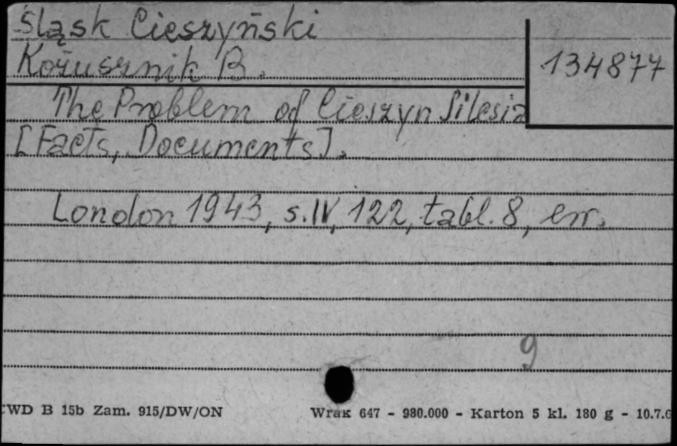 Śląsk Cieszyński
Kożusznik B.
134877
The Problem of Cieszyn Silesia
[Facts, Documents].
London 1943, s. IV, 122, tabl. 8, err.
9
WD B 15b Zam. 915/DW/ON
Wrak 647 - 980.000 - Karton 5 kl. 180 g - 10.7.6